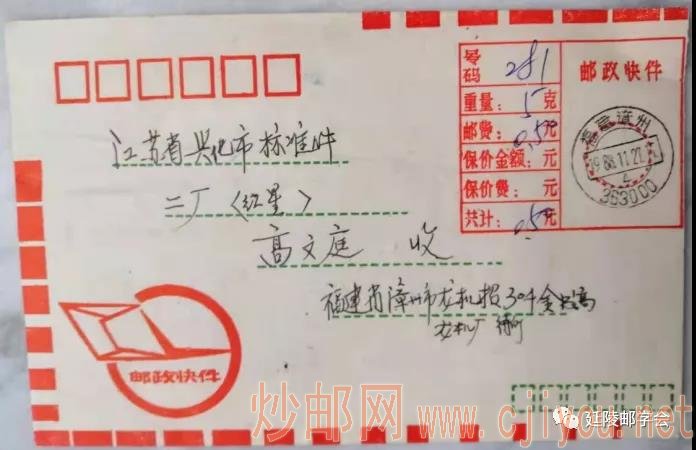 号码 281
邮政快件
重量: 5 克
邮费: 0.50 元
保价金额: 元
保价费: 元
共计: 0.50 元
福建漳州
1988.11.21
363000
江苏省兴化市标准件
二厂(红星)
高文庭 收
福建省漳州市龙机
邮政快件
炒邮网 www.cjiyou.net
廷陵邮学会